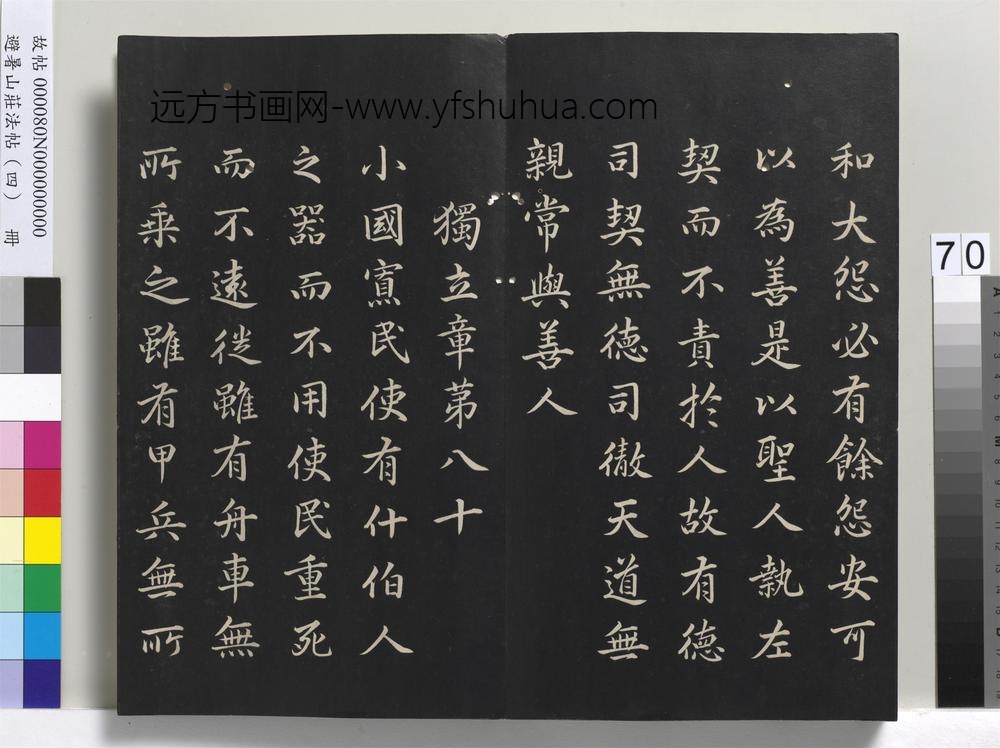 和大怨必有餘怨安可
以為善是以聖人執左
契而不責於人故有德
司契無德司徹天道無
親常與善人
獨立章第八十
小國寡民使有什伯人
之器而不用使民重死
而不遠徙雖有舟車無
所乗之雖有甲兵無所
远方书画网-www.yfshuhua.com
故帖 000080N000000000
避暑山莊法帖（四） 冊
70